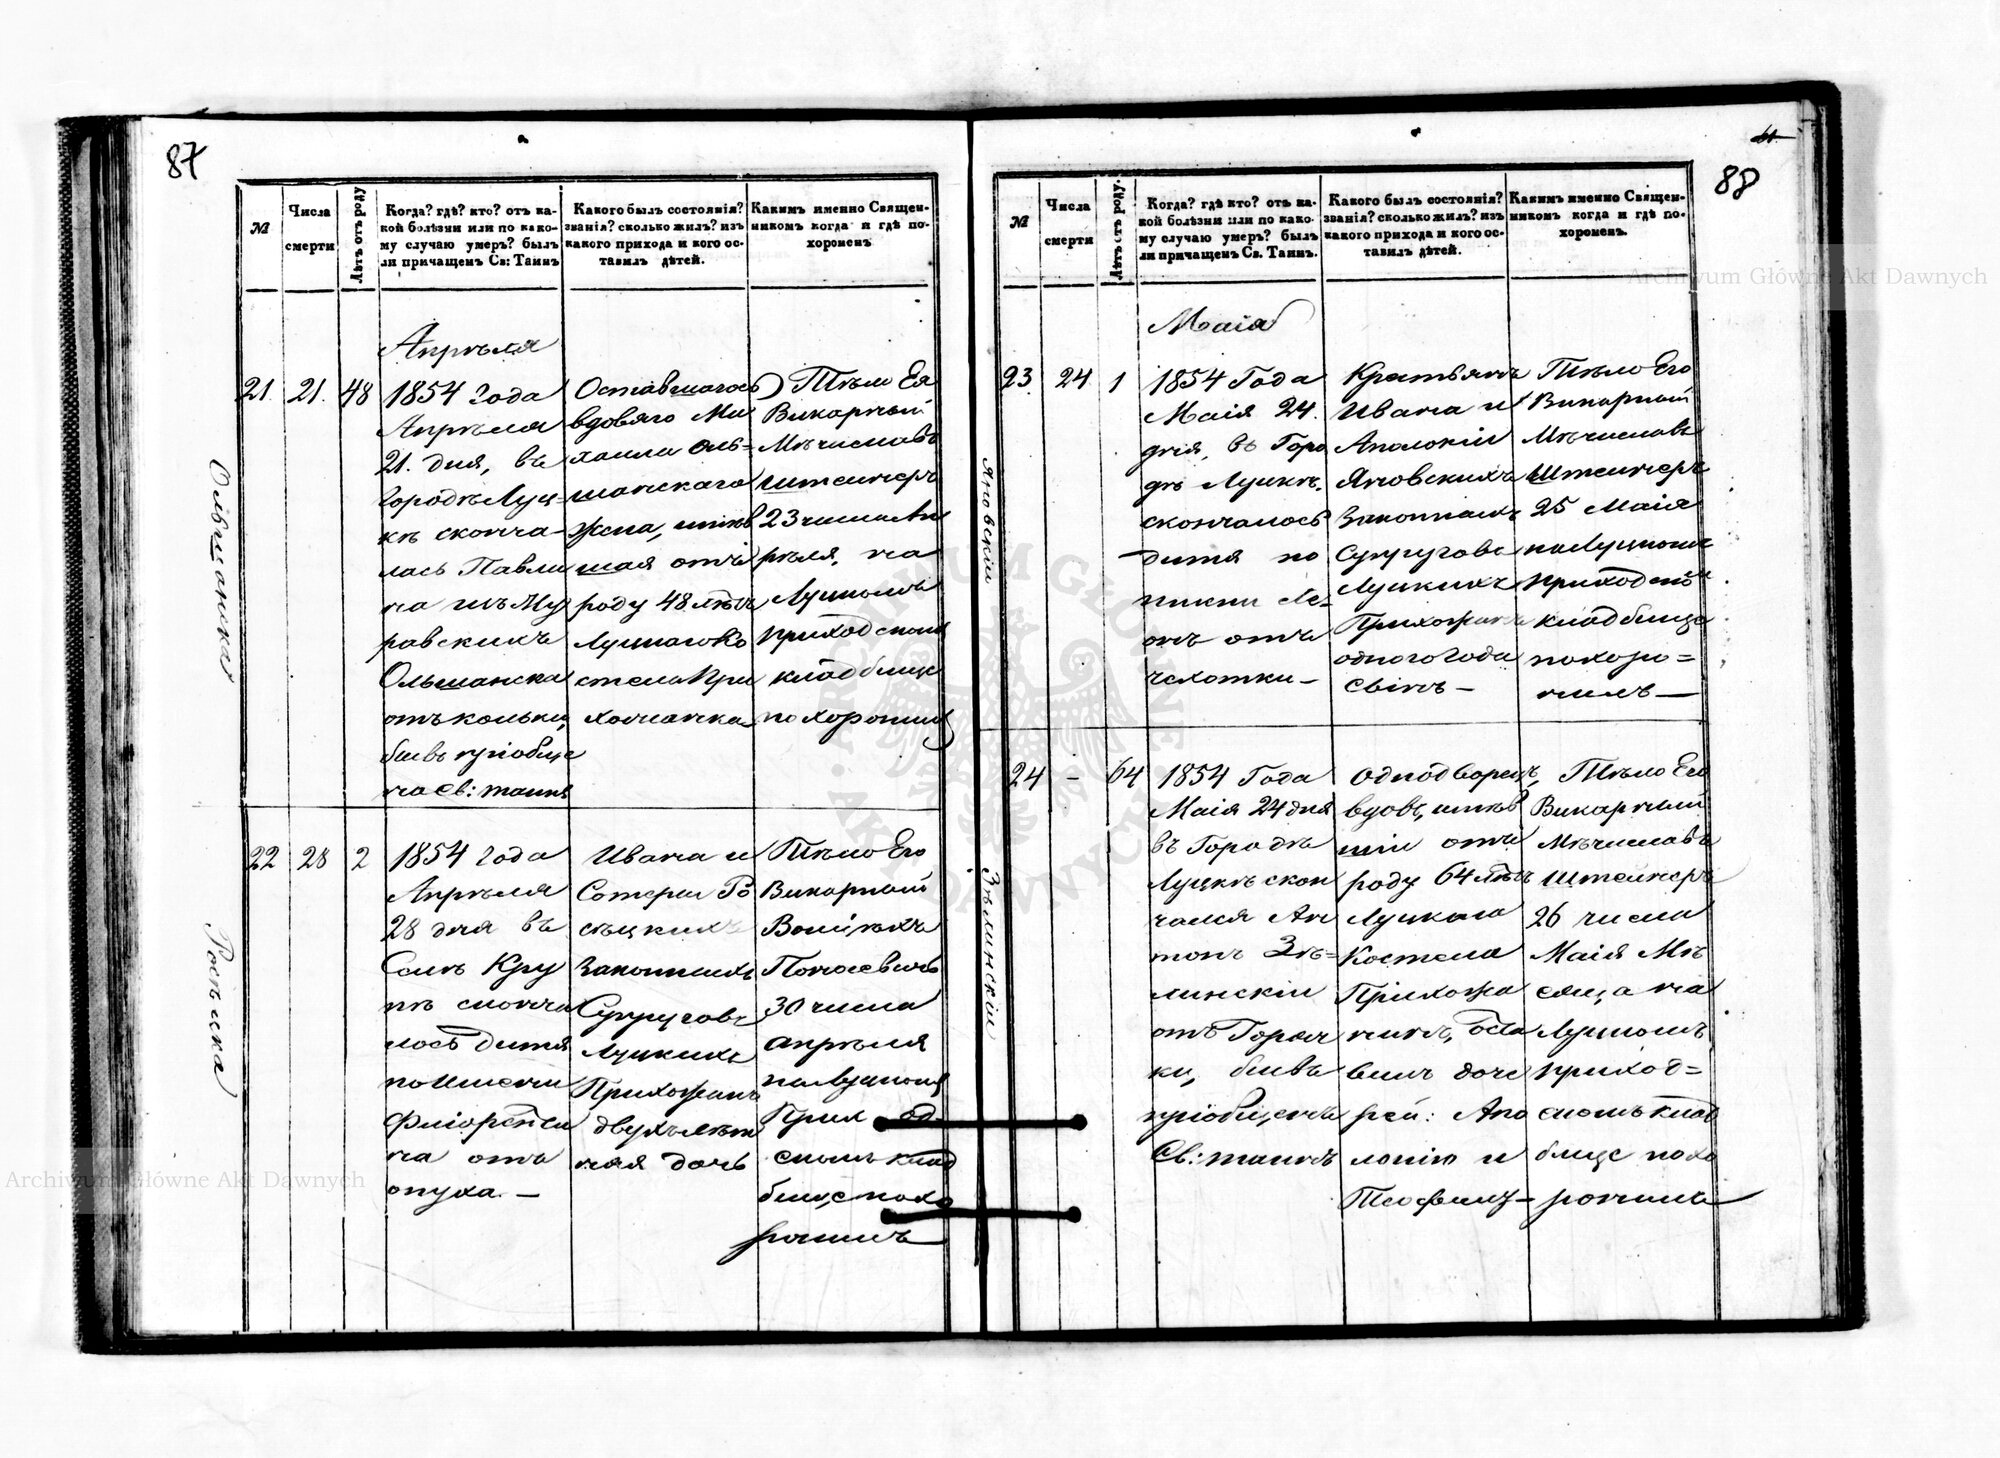 87
№
Числа
смерти
Лѣтъ отъ роду
Когда? гдѣ? кто? отъ ка-
кой болѣзни или по како-
му случаю умеръ? былъ
ли причащенъ Св: Таинъ
Какого былъ состоянія?
званія? сколько жилъ? изъ
какого прихода и кого ос-
тавилъ дѣтей.
Какимъ именно Священ-
никомъ когда и гдѣ по-
хороненъ
Апрѣля
21. 21. 48
1854 Года
Апрѣля
21. дня, въ
Городѣ Луц-
кѣ сконча-
лась Павли
на изъ Му
равскихъ
Ольшанска
отъ кольки,
бывъ пріобще
на Св: таинъ
Оставшагось
вдоваго Ми
хаила Оль-
шанскаго
Жена, имѣв
шая отъ
роду 48 лѣтъ
Луцкаго Ко
стела При
хожанка
Тѣло Ея
Викарный
Мѣчиславъ
Штейнеръ
23 числа Ап
рѣля, на
Луцкомъ
приходскомъ
кладбище
похоронилъ
Ольшанска
22 28 2
1854 Года
Апрѣля
28 дня въ
Селѣ Кру
пѣ сконча
лось дитя
по имени
Флорента
на отъ
опуха. —
Ивана и
Ро
сѣцкихъ
Законныхъ
Супруговъ
Луцкихъ
Прихожанъ
двухълѣт
няя дочь
Тѣло Его
Викарный
30 числа
апрѣля
на Луцкомъ
Приход
скомъ клад
бищѣ похо
ронилъ
Росѣцка
88
№
Числа
смерти
Лѣтъ отъ роду.
Когда? гдѣ? кто? отъ ка-
кой болѣзни или по како-
му случаю умеръ? былъ
ли причащенъ Св. Таинъ.
Какого былъ состоянія?
званія? сколько жилъ? изъ
какого прихода и кого ос-
тавилъ дѣтей.
Какимъ именно Священ-
никомъ когда и гдѣ по-
хороненъ.
Маія
23 24 1
1854 Года
Маія 24.
дня, въ Горо
дѣ Луцкѣ.
скончалось
дитя по
имени Ле-
онъ отъ
чехотки —
Крестьянъ
Ивана и
Аполоніи
Яновскихъ
Законныхъ
Супруговъ
Луцкихъ
Прихожанъ
одного Года
Сынъ —
Тѣло Его
Викарный
Мѣчиславъ
Штейнеръ
25 Маія
на Луцкомъ
приходском
кладбище
похоро=
нилъ —
Яновскій
24 - 64
1854 Года
Маія 24 дня
въ Городѣ
Луцкѣ скон
чался Ан
тонъ Зѣ=
линскій
отъ Горяч
ки, бывъ
пріобщенъ
Св: таинъ
Однодворецъ,
вдовъ, имѣв
шій отъ
роду 64 лѣтъ
Луцкаго
Костела
Прихожа
нинъ, оста
вилъ доче
рей: Апо
лонію и
Теофилу —
Тѣло Его
Викарный
Мѣчиславъ
Штейнеръ
26 числа
Маія Мѣ
сяца на
Луцкомъ
приход=
скомъ клад
бище похо
ронилъ
Зѣлинскій
Archiwum Główne Akt Dawnych
Archiwum Główne Akt Dawnych
ARCHIWUM GŁÓWNE AKT DAWNYCH